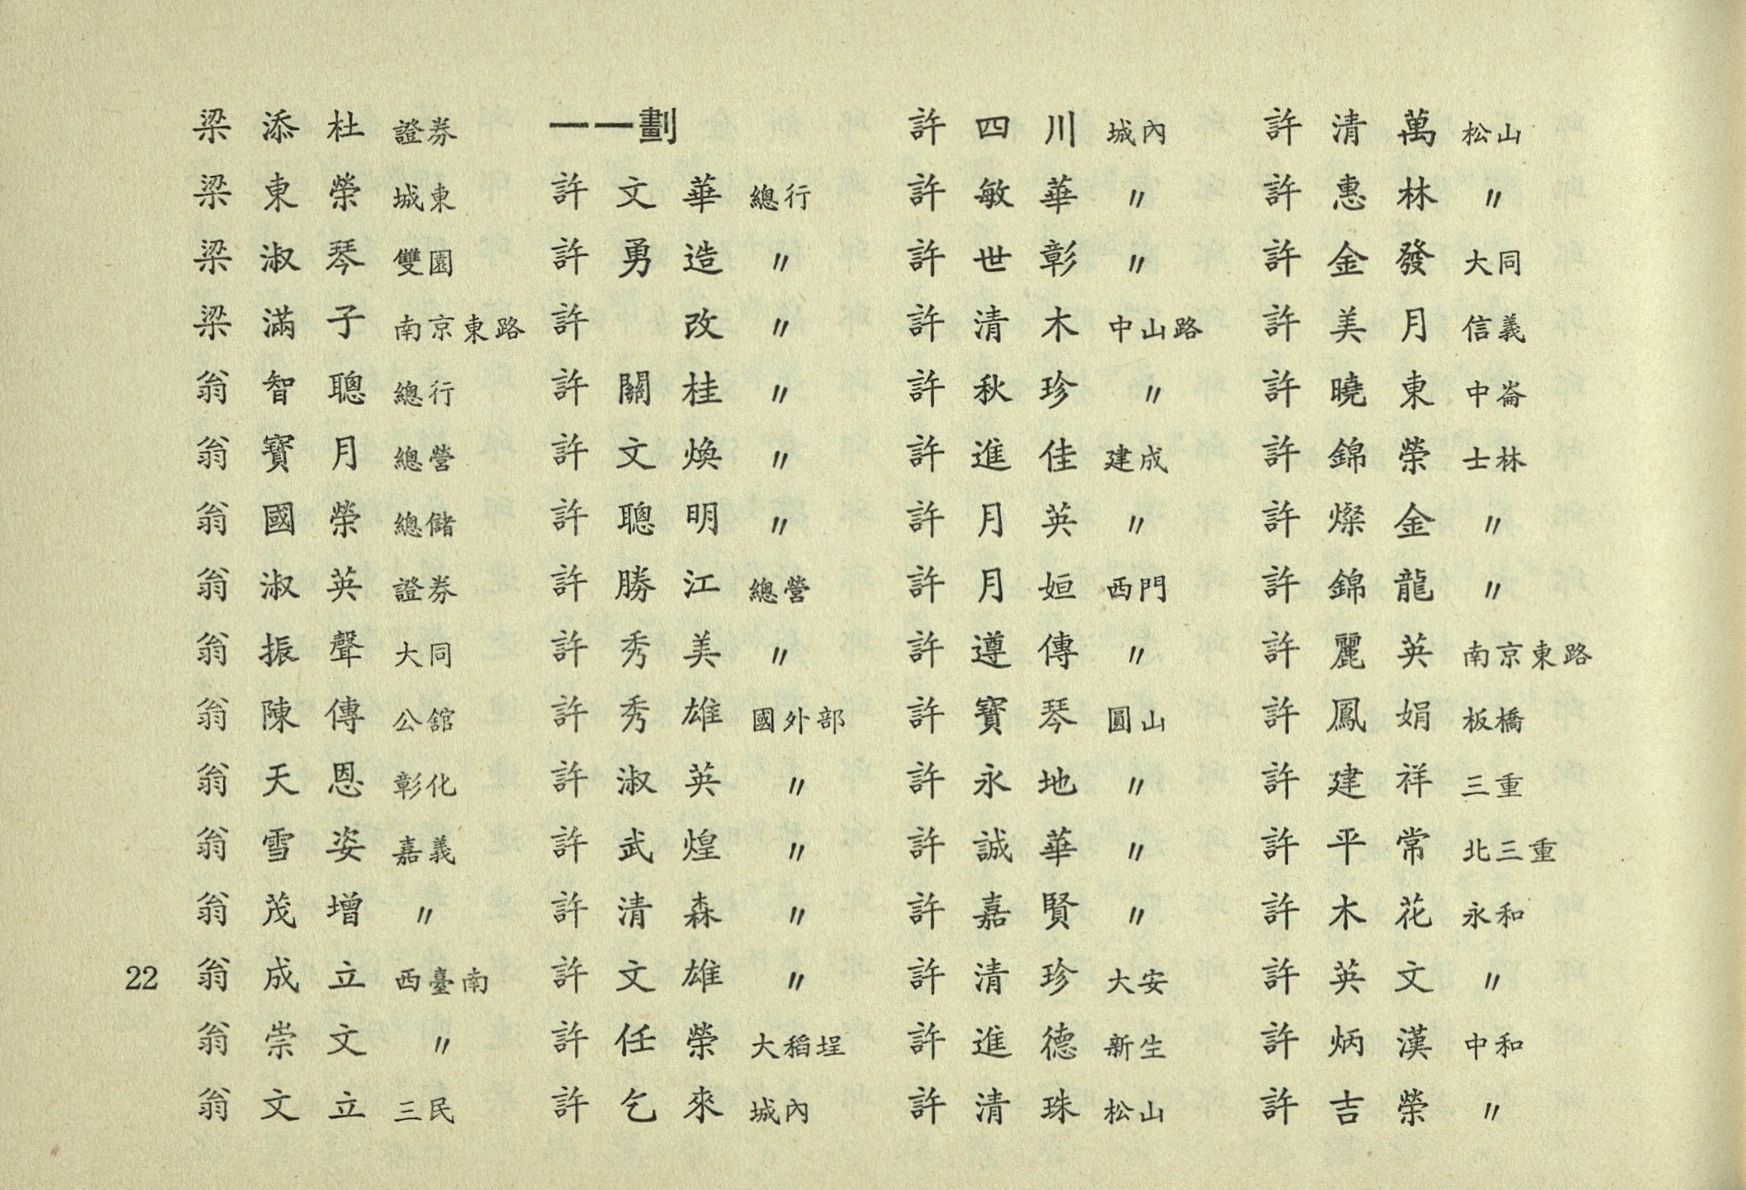 梁添杜 證券
梁東榮 城東
梁淑琴 雙園
梁滿子 南京東路
翁智聰 總行
翁寶月 總營
翁國榮 總儲
翁淑英 證券
翁振聲 大同
翁陳傳 公館
翁天恩 彰化
翁雪姿 嘉義
翁茂增 〃
翁成立 西臺南
翁崇文 〃
翁文立 三民
一一劃
許文華 總行
許勇造 〃
許改 〃
許關桂 〃
許文煥 〃
許聰明 〃
許勝江 總營
許秀美 〃
許秀雄 國外部
許淑英 〃
許武煌 〃
許清森 〃
許文雄 〃
許任榮 大稻埕
許乞來 城內
許四川 城內
許敏華 〃
許世彰 〃
許清木 中山路
許秋珍 〃
許進佳 建成
許月英 〃
許月姮 西門
許遵傳 〃
許寶琴 圓山
許永地 〃
許誠華 〃
許嘉賢 〃
許清珍 大安
許進德 新生
許清珠 松山
許清萬 松山
許惠林 〃
許金發 大同
許美月 信義
許曉東 中崙
許錦榮 士林
許燦金 〃
許錦龍 〃
許麗英 南京東路
許鳳娟 板橋
許建祥 三重
許平常 北三重
許木花 永和
許英文 〃
許炳漢 中和
許吉榮 〃
22